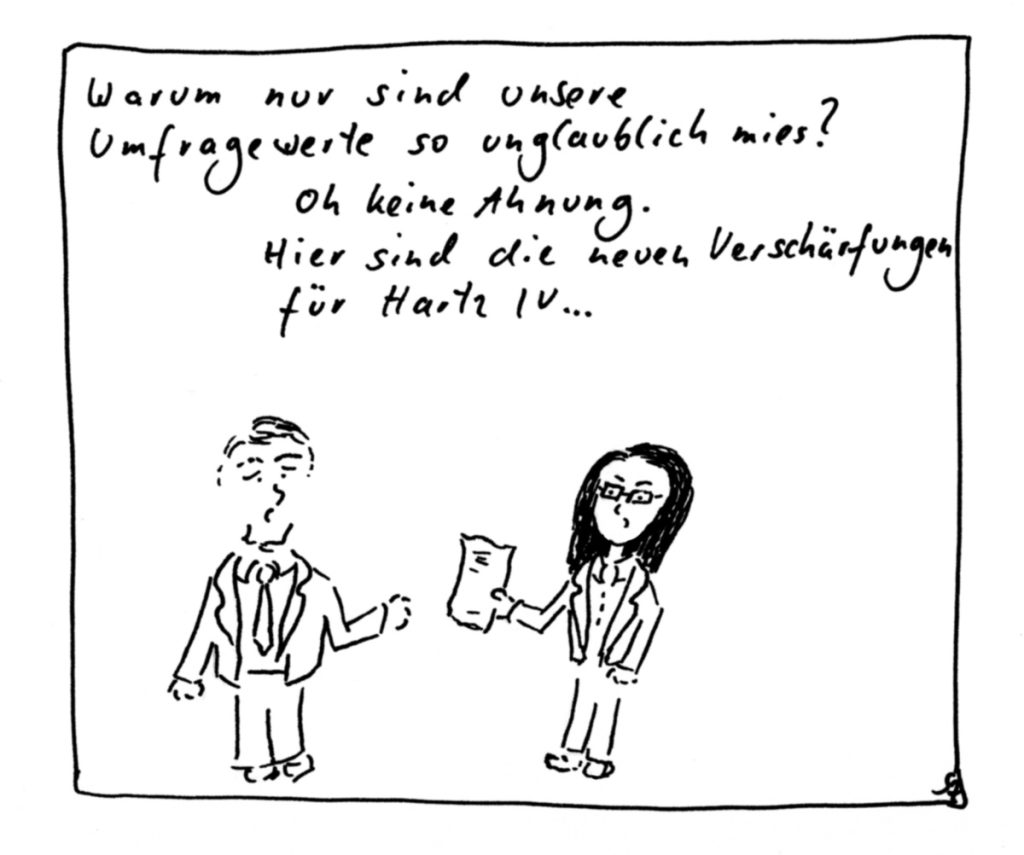 Warum nur sind unsere
Umfragewerte so unglaublich mies?
Oh keine Ahnung.
Hier sind die neuen Verschärfungen
für Hartz IV...